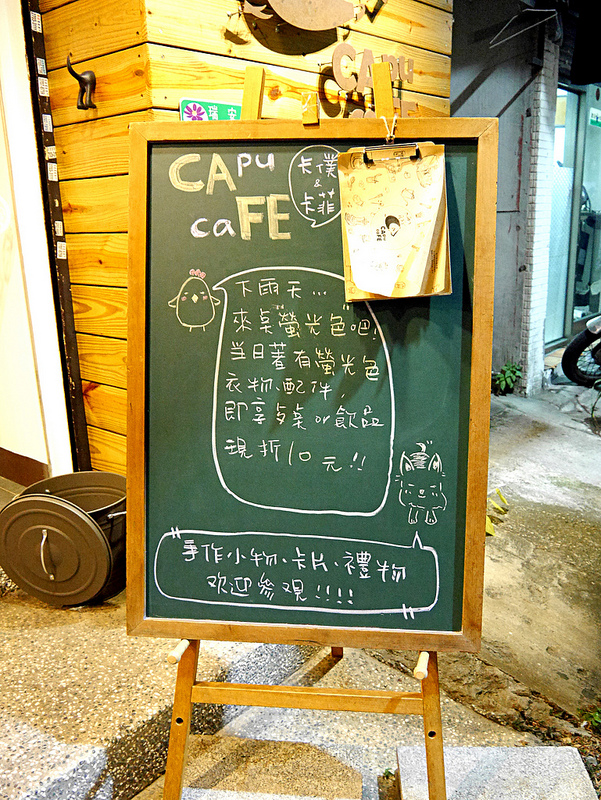 CAPU
CAFE
CApu
caFE
卡僕
&
卡菲
下雨天...
來桌"螢光色"吧!
當日著有螢光色
衣物、配件,
即享多桌or飲品
現折10元!!
"手作小物、卡片、禮物
欢迎參观!!!!"